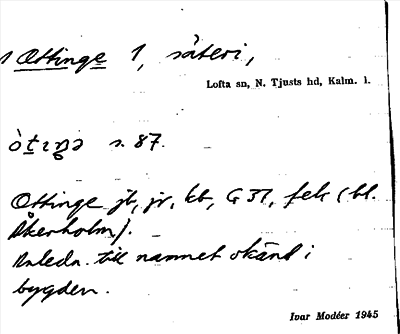 1 Ottinge 1, säteri,
Lofta sn, N. Tjusts hd, Kalm. l.
òt̠ɩŋə s. 87.
Ottinge jb, jr, kb, G 37, fek (bl.
Åkerholm).
Anledn. till namnet okänd i
bygden.
Ivar Modéer 1945